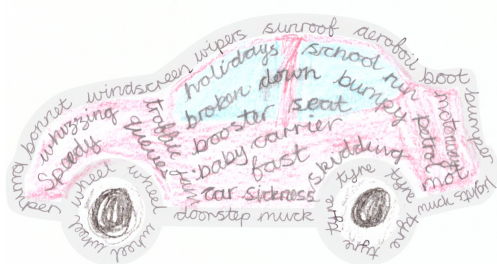 bonnet windscreen wipers sunroof aerofoil boot bumper
holidays
school run
broken down
bumpy
booster seat
baby carrier
fast
car sickness
whizzing
speedy
traffic jam
queues
skidding
motorway
petrol
wheel wheel wheel wheel
doorstep muck
tyre tyre tyre tyre tyre
muck